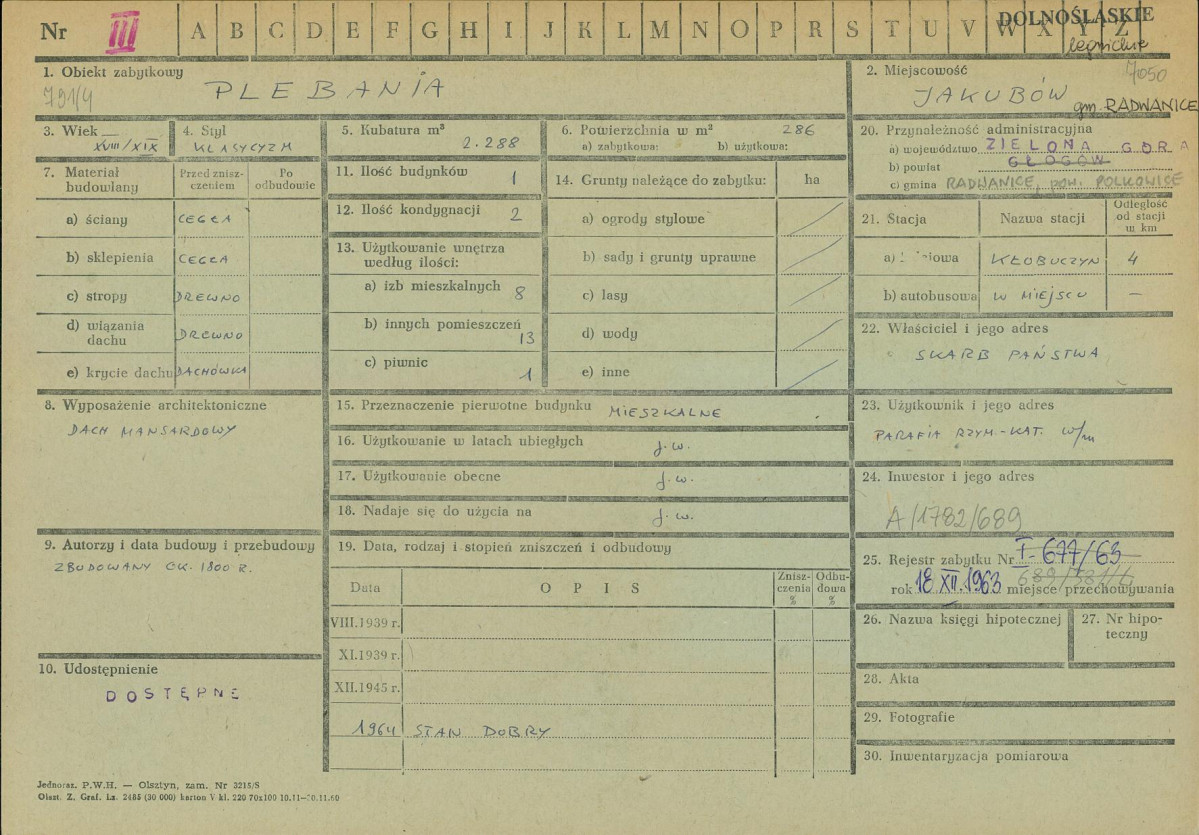 Nr III A B C D E F G H I J K L M N O P R S T U V W X Y Z
DOLNOŚLĄSKIE
legnickie
1. Obiekt zabytkowy
791/4
PLEBANIA
2. Miejscowość
7050
JAKUBÓW
gm. RADWANICE
3. Wiek
XVIII/XIX
4. Styl
KLASYCYZM
5. Kubatura m³
2.288
6. Powierzchnia w m² 286
a) zabytkowa: b) użytkowa:
7. Materiał budowlany
Przed zniszczeniem
Po odbudowie
a) ściany CEGŁA
b) sklepienia CEGŁA
c) stropy DREWNO
d) wiązania dachu DREWNO
e) krycie dachu DACHÓWKA
8. Wyposażenie architektoniczne
DACH MANSARDOWY
9. Autorzy i data budowy i przebudowy
ZBUDOWANY OK. 1800 R.
10. Udostępnienie
DOSTĘPNE
11. Ilość budynków 1
12. Ilość kondygnacji 2
13. Użytkowanie wnętrza
według ilości:
a) izb mieszkalnych 8
b) innych pomieszczeń 13
c) piwnic 1
14. Grunty należące do zabytku: ha
a) ogrody stylowe
b) sady i grunty uprawne
c) lasy
d) wody
e) inne
15. Przeznaczenie pierwotne budynku MIESZKALNE
16. Użytkowanie w latach ubiegłych j.w.
17. Użytkowanie obecne j.w.
18. Nadaje się do użycia na j.w.
19. Data, rodzaj i stopień zniszczeń i odbudowy
Data
O P I S
Zniszczenia %
Odbudowa %
VIII.1939 r.
XI.1939 r.
XII.1945 r.
1964 STAN DOBRY
20. Przynależność administracyjna
a) województwo ZIELONA GÓRA
b) powiat GŁOGÓW
c) gmina RADWANICE, pow. POLKOWICE
21. Stacja
Nazwa stacji
Odległość od stacji w km
KŁOBUCZYN 4
b) autobusowa W MIEJSCU —
22. Właściciel i jego adres
SKARB PAŃSTWA
23. Użytkownik i jego adres
PARAFIA RZYM.-KAT. w/m
24. Inwestor i jego adres
A/1782/689
25. Rejestr zabytku Nr I-677/63
rok 18 XII.1963 miejsce przechowywania
26. Nazwa księgi hipotecznej
27. Nr hipoteczny
28. Akta
29. Fotografie
30. Inwentaryzacja pomiarowa
Jednoraz. P.W.H. — Olsztyn, zam. Nr 3215/S
Olszt. Z. Graf. Lz. 2485 (30 000) karton V kl. 220 70x100